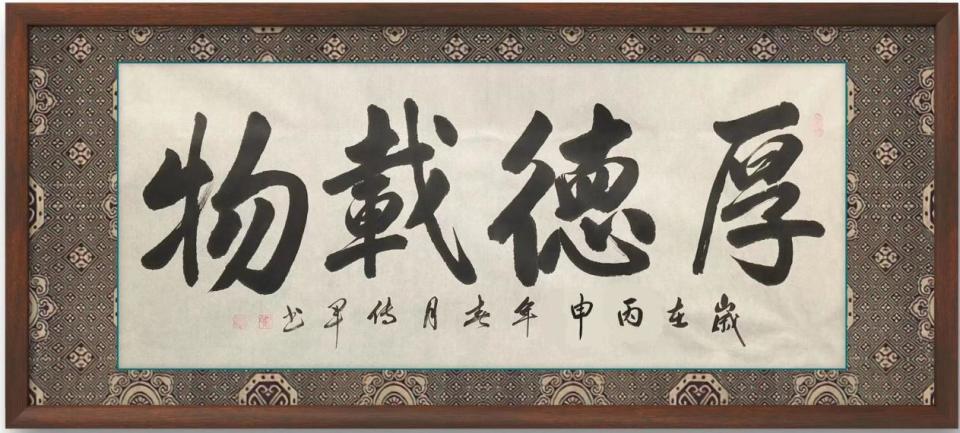 厚德載物
歲在丙申年春月傳軍书